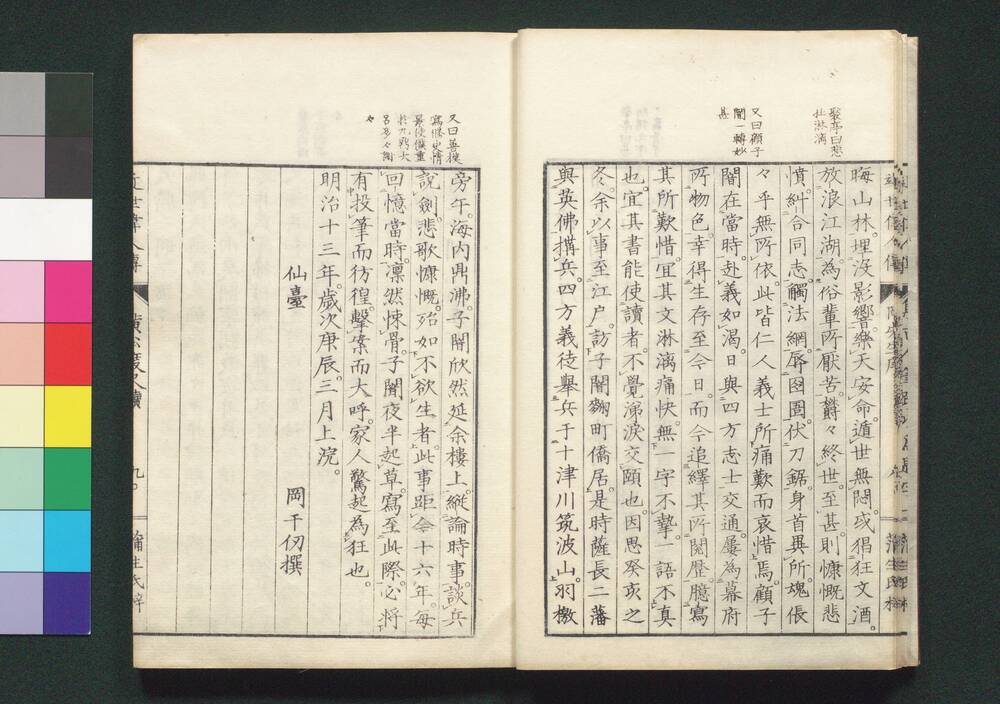 晦山林。埋沒影響。樂天安命。遁世無悶。或猖狂文酒。
放浪江湖。為俗輩所厭苦。欝々終世。至甚。則慷慨悲
憤。糾合同志。觸法網。辱囹圄。伏刀鋸。身首異所。魂倀
々乎無所依。此皆仁人義士所痛歎而哀惜焉。顧子
闇在當時。赴義如渴。日與四方志士交通。屢為幕府
所物色。幸得生存至今日。而今追繹其所閱歷。臆寫
其所歎惜。宜其文淋漓痛快。無一字不摯。一語不真
也。宜其書能使讀者不覺涕淚交頤也。因思癸亥之
冬。余以事至江戶。訪子闇麴町僑居。是時薩長二藩
與英佛搆兵。四方義徒擧兵于十津川筑波山。羽檄
聚亭曰悲
壯淋漓
又曰顧子
闇一轉妙
甚
旁午。海內鼎沸。子闇欣然延余樓上。縱論時事。談兵
說劍。悲歌慷慨。殆如不欲生者。此事距今十六年。每
回憶當時。凜然悚骨。子闇夜半起草。寫至此際。必將
有投筆而彷徨。擊案而大呼。家人驚起為狂也。
明治十三年。歲次庚辰。三月上浣。
仙臺
岡千仞撰
又曰善摸
寫修史情
景使僕重
於九鼎大
呂多々謝
々